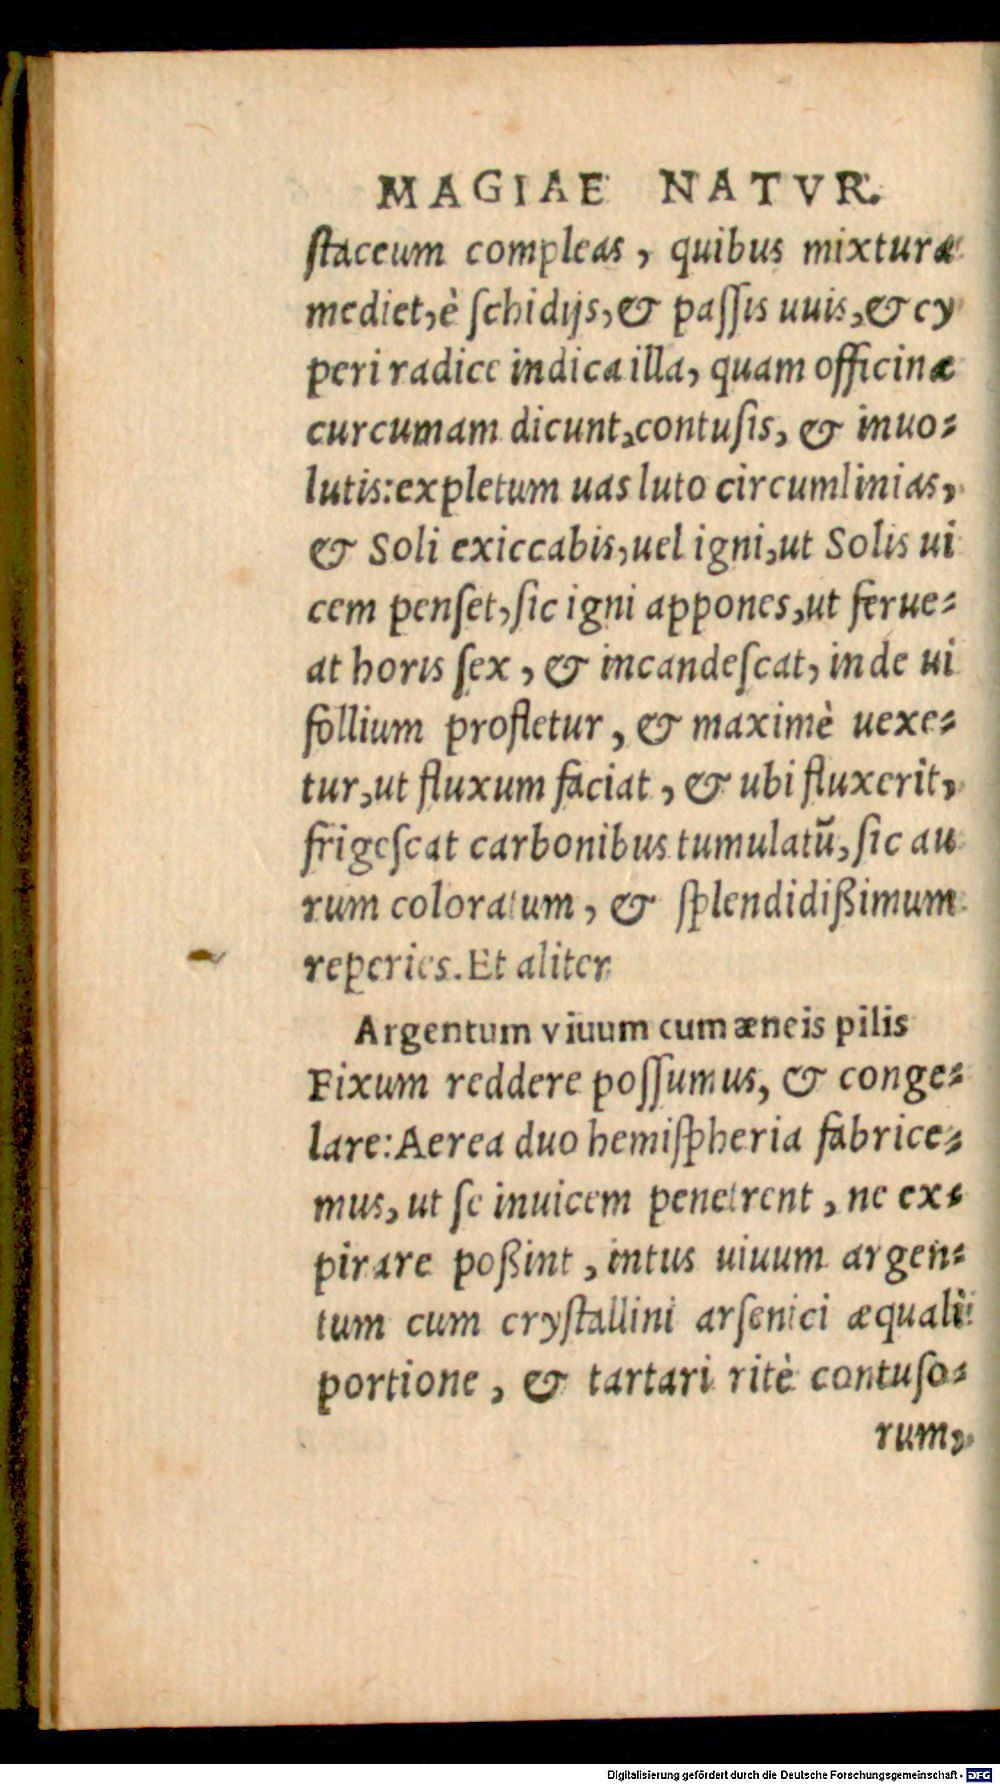 MAGIAE NATVR.
ſtaceum compleas, quibus mixturæ
mediet, è ſchidijs, & paſſis uuis, & cy
peri radice indica illa, quam officinæ
curcumam dicunt, contuſis, & inuo⸗
lutis: expletum uas luto circumlinias,
& Soli exiccabis, uel igni, ut Solis ui
cem penſet, ſic igni appones, ut ferue⸗
at horis ſex, & incandeſcat, inde ui
follium profletur, & maximè uexe⸗
tur, ut fluxum faciat, & ubi fluxerit,
frigeſcat carbonibus tumulatū, ſic au
rum coloratum, & ſplendidißimum
reperies. Et aliter
Argentum viuum cum æneis pilis
Fixum reddere poſſumus, & conge⸗
lare: Aerea duo hemiſpheria fabrice⸗
mus, ut ſe inuicem penetrent, ne ex⸗
pirare poßint, intus uiuum argen⸗
tum cum cryſtallini arſenici æquali
portione, & tartari ritè contuſo⸗
rum,
Digitalisierung gefördert durch die Deutsche Forschungsgemeinschaft - DFG